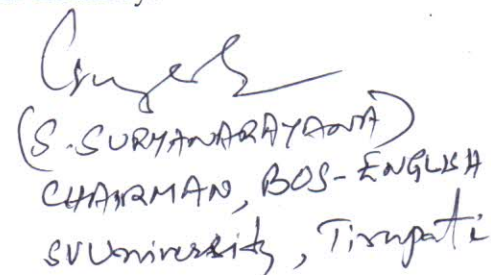 (S. SURYANARAYANA)
CHAIRMAN, BOS-ENGLISH
SVUniversity, Tirupati